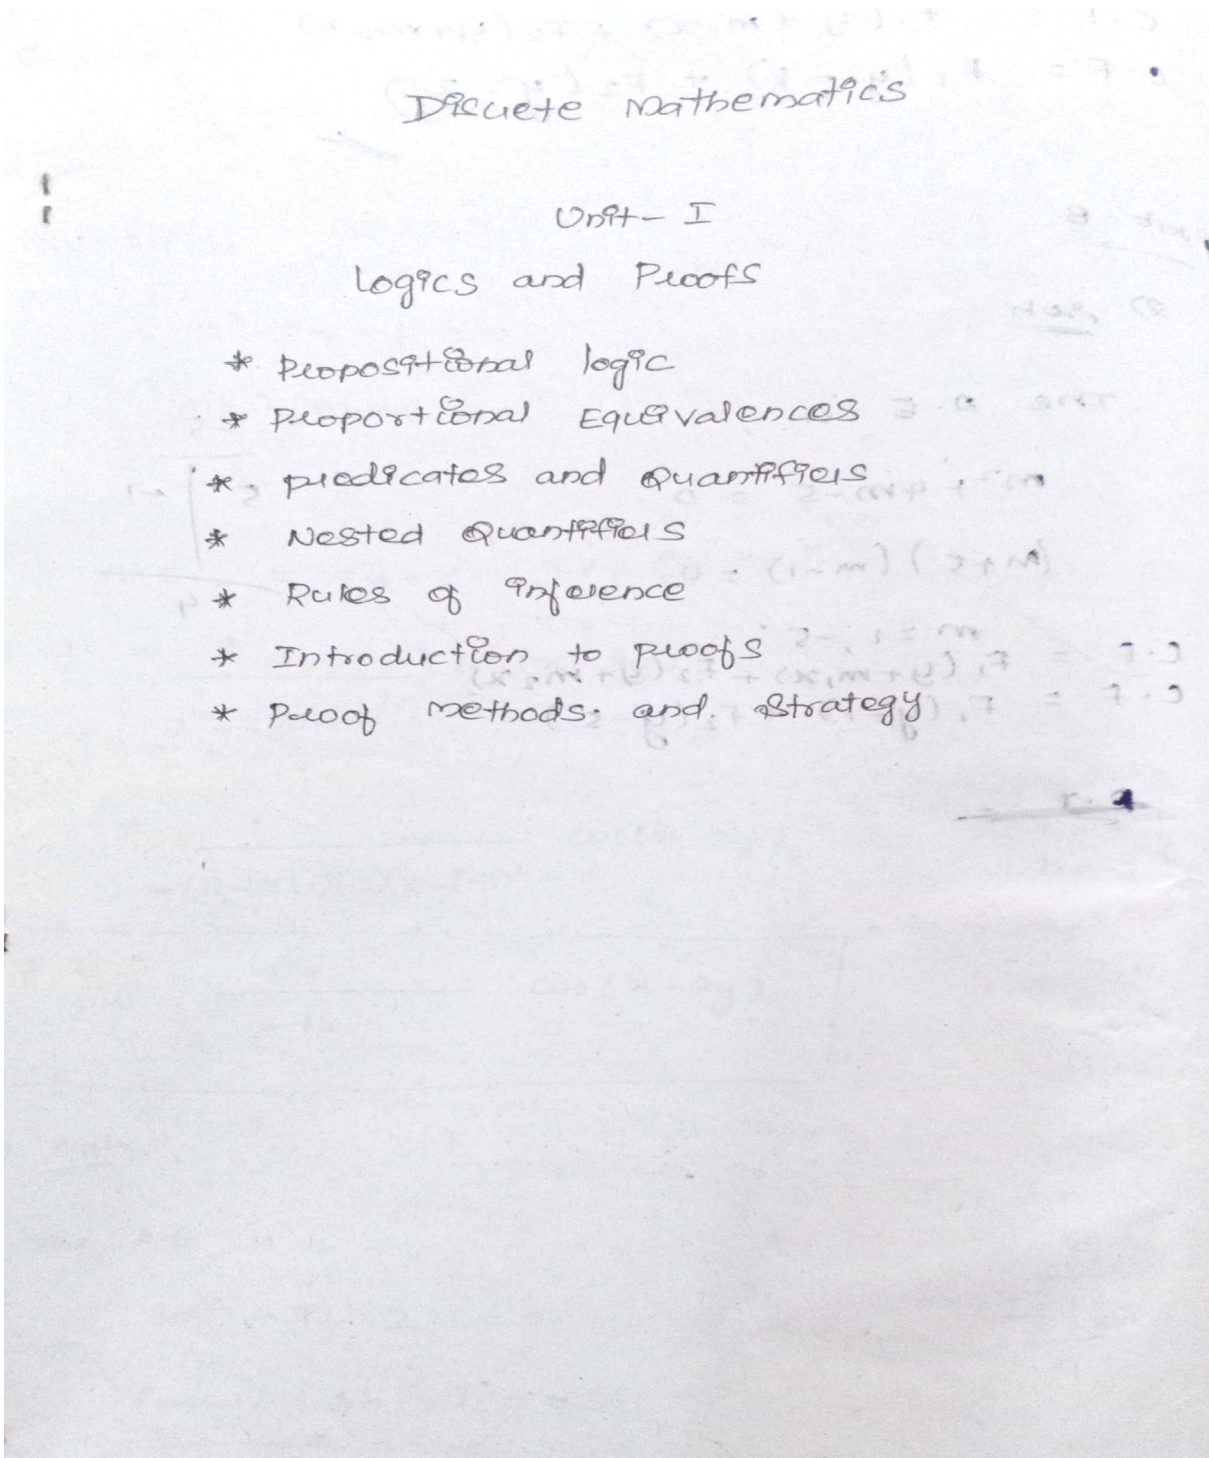 Discrete Mathematics
Unit - I
Logics and Proofs
* Propositional logic
* Proportional Equivalences
* predicates and Quantifiers
* Nested Quantifiers
* Rules of inference
* Introduction to proofs
* Proof methods. and. Strategy